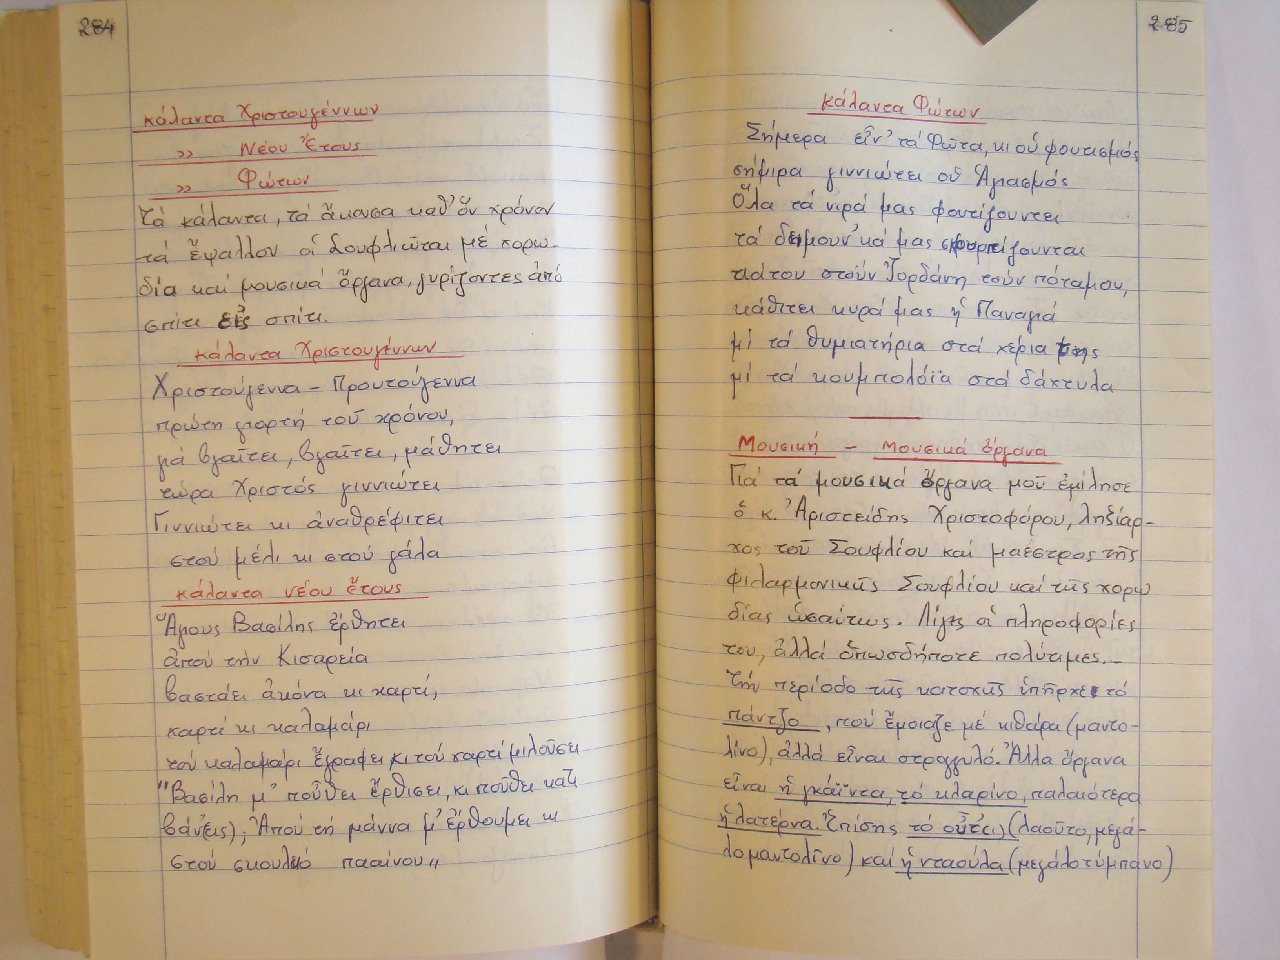 284
κάλαντα Χριστουγέννων
» Νέου Ἔτους
» Φώτων
Τά κάλαντα, τά ἄκουσα καθ' ὅν χρόνον
τά ἔψαλλον οἱ Σουφλιῶται μέ χορω-
δία καί μουσικά ὄργανα, γυρίζοντες ἀπό
σπίτι εἰς σπίτι.
κάλαντα Χριστουγέννων
Χριστούγεννα – Προυτούγεννα
πρώτη γιορτή τοῦ χρόνου,
γιά βγαῖτει, βγαῖτει, μάθητει
τώρα Χριστός γιννιώτει
Γιννιώτει κι ἀναθρέφιτει
στού μέλι κι στού γάλα
κάλαντα νέου ἔτους
Ἅγιους Βασίλης ἔρθητει
ἀπού τήν Κισαρεία
βαστάει ἀκόνα κι χαρτί,
χαρτί κι καλαμάρι
τού καλαμάρι ἔγραφει κι τού χαρτί μιλοῦσει
"Βασίλη μ' ποῦθει ἔρθισει, κι ποῦθει κατι
βάν(εις); Ἀπού τή μάννα μ' ἔρθουμει κι
στού σκουλειό πααίνου"
285
κάλαντα Φώτων
Σήμερα εἶν' τά Φῶτα, κι οὑ φουτισμός
σήμιρα γιννιώτει οὑ Ἁγιασμός
Ὅλα τά νιρά μας φουτίζουντει
τά δειμουν'κά μας σκουρπίζουνται
κάτου στούν Ἰορδάνη τούν πόταμου,
κάθιτει κυρά μας ἡ Παναγιά
μί τά θυμιατήρια στά χέρια της
μί τά κουμπολόϊα στά δάχτυλα
Μουσική – μουσικά ὄργανα
Γιά τά μουσικά ὄργανα μοῦ ἐμίλησε
ὁ κ. Ἀριστείδης Χριστοφόρου, ληξίαρ-
χος τοῦ Σουφλίου καί μαέστρος τῆς
φιλαρμονικῆς Σουφλίου καί τῆς χορω
δίας ὡσαύτως. Λίγες οἱ πληροφορίες
του, ἀλλά ὁπωσδήποτε πολύτιμες.–
Τήν περίοδο τῆς κατοχῆς ὑπῆρχε τό
πάντζο, πού ἔμοιαζε μέ κιθάρα (μαντο-
λίνο), ἀλλά εἶναι στρογγυλό. Ἄλλα ὄργανα
εἶναι ἡ γκάϊντα, τό κλαρίνο, παλαιότερα
ἡ λατέρνα. Ἐπίσης τό οὖτι, (λαοῦτο, μεγά-
λο μαντολῖνο) καί ἡ νταούλα (μεγάλο τύμπανο)